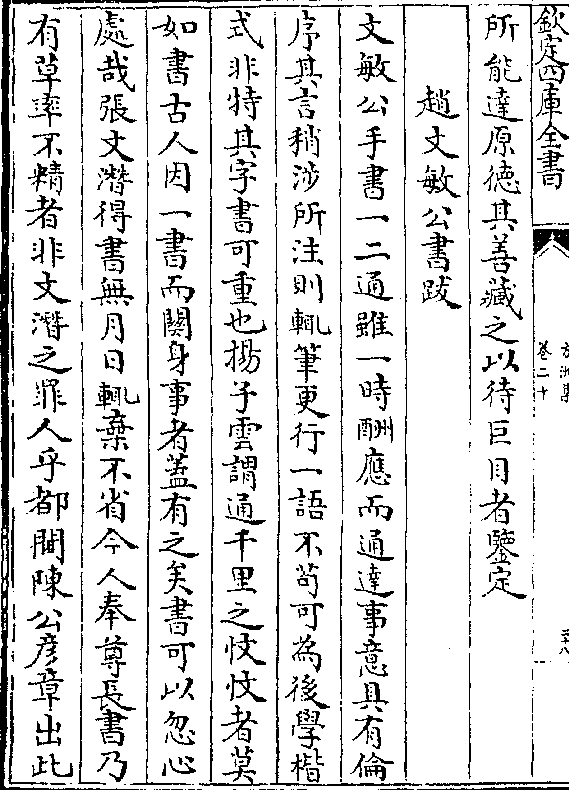 欽定四庫全書
方洲集
卷二十
所能達原德其善藏之以待巨目者鑒定
趙文敏公書跋
文敏公手書一二通雖一時酬應而通達事意具有倫
序其言稍涉所注則輒筆更行一語不苟可為後學楷
式非特其字書可重也揚子雲謂通千里之忞忞者莫
如書古人因一書而關身事者蓋有之矣書可以忽心
處哉張文潛得書無月日輒棄不省今人奉尊長書乃
有草率不精者非文潛之罪人乎都閫陳公彥章出此